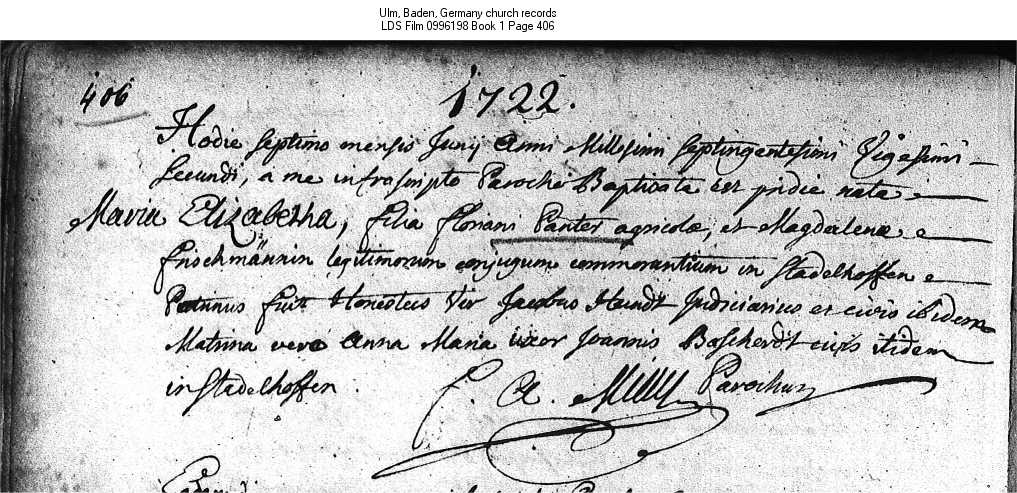 Ulm, Baden, Germany church records
LDS Film 0996198 Book 1 Page 406
406
1722.
Hodie septimo mensis Junij Anni Millesimi septingentesimi Vigesimi
Secundi, a me infrascripto Parocho Baptizata est pridie nata
Maria Elizabetha, filia Floriani Panter agricolae, et Magdalenae
Frischmännin legitimorum conjugum commorantium in Stadelhoffen
Patrinus fuit Honestus Vir Jacobus Hundt Judiciarius et civis ibidem
Matrina vero Anna Maria uxor Joannis civis itidem
in Stadelhoffen
Parochus